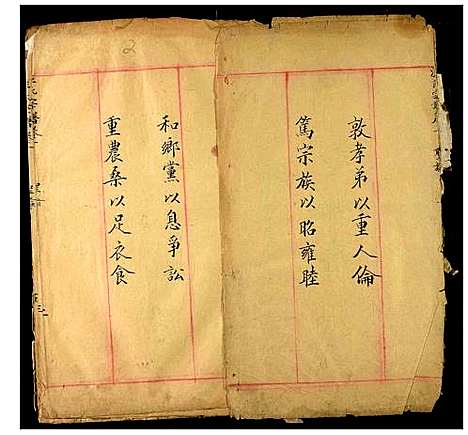 敦孝弟以重人倫
篤宗族以昭雍睦
和鄉黨以息爭訟
重農桑以足衣食
2